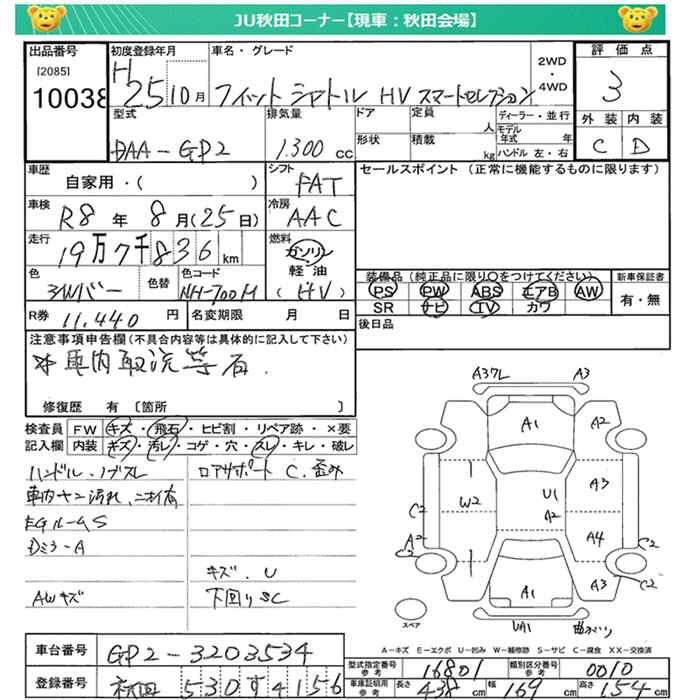 JU秋田コーナー【現車：秋田会場】
出品番号
[2085]
10038
初度登録年月
H25 10月
車名・グレード
フィット シャトル HV スマートセレクション
2WD
・
4WD
評価点
3
型式
DAA-GP2
排気量
1.300 cc
ドア
定員
人
ディーラー・並行
形状
積載
kg
モデル年式 年
ハンドル 左・右
外装 内装
C D
車歴
自家用・( )
シフト
FAT
セールスポイント (正常に機能するものに限ります)
車検
R8年 8月(25日)
冷房
AAC
走行
19万7千836 km
燃料
ガソリン
軽油
(HV)
色
シルバー
色替
色コード
NH-700M
装備品 (純正品に限り○をつけてください)
新車保証書
PS PW ABS エアB AW
有・無
SR ナビ TV カワ
R券 11.440 円
名変期限 月 日
後日品
注意事項申告欄 (不具合内容等は具体的に記入して下さい)
修復歴 有 〔箇所 〕
検査員 FW キズ・飛石・ヒビ割・リペア跡・×要
記入欄 内装 キズ・汚レ・コゲ・穴・スレ・キレ・破レ
ハンドル、ノブスレ
ロアサポート C.歪み
車内ヤニ汚れ、ニオイ有
EGルームS
Dミラ-A
キズ.U
AWキズ
下回りSC
A37L A3
A1 A2
U1 A3
W2 A2
C2 A2 C2
A4 C2
A1 A3 C2
UA1
スペア
A-キズ E-エクボ U-凹み W-補修跡 S-サビ C-腐食 XX-交換済
車台番号 GP2-3203534
登録番号 秋田 530 す 4156
型式指定番号 参考 16801
類別区分番号 参考 0010
車庫証明用 参考 長さ 438 cm 幅 169 cm 高さ 154 cm